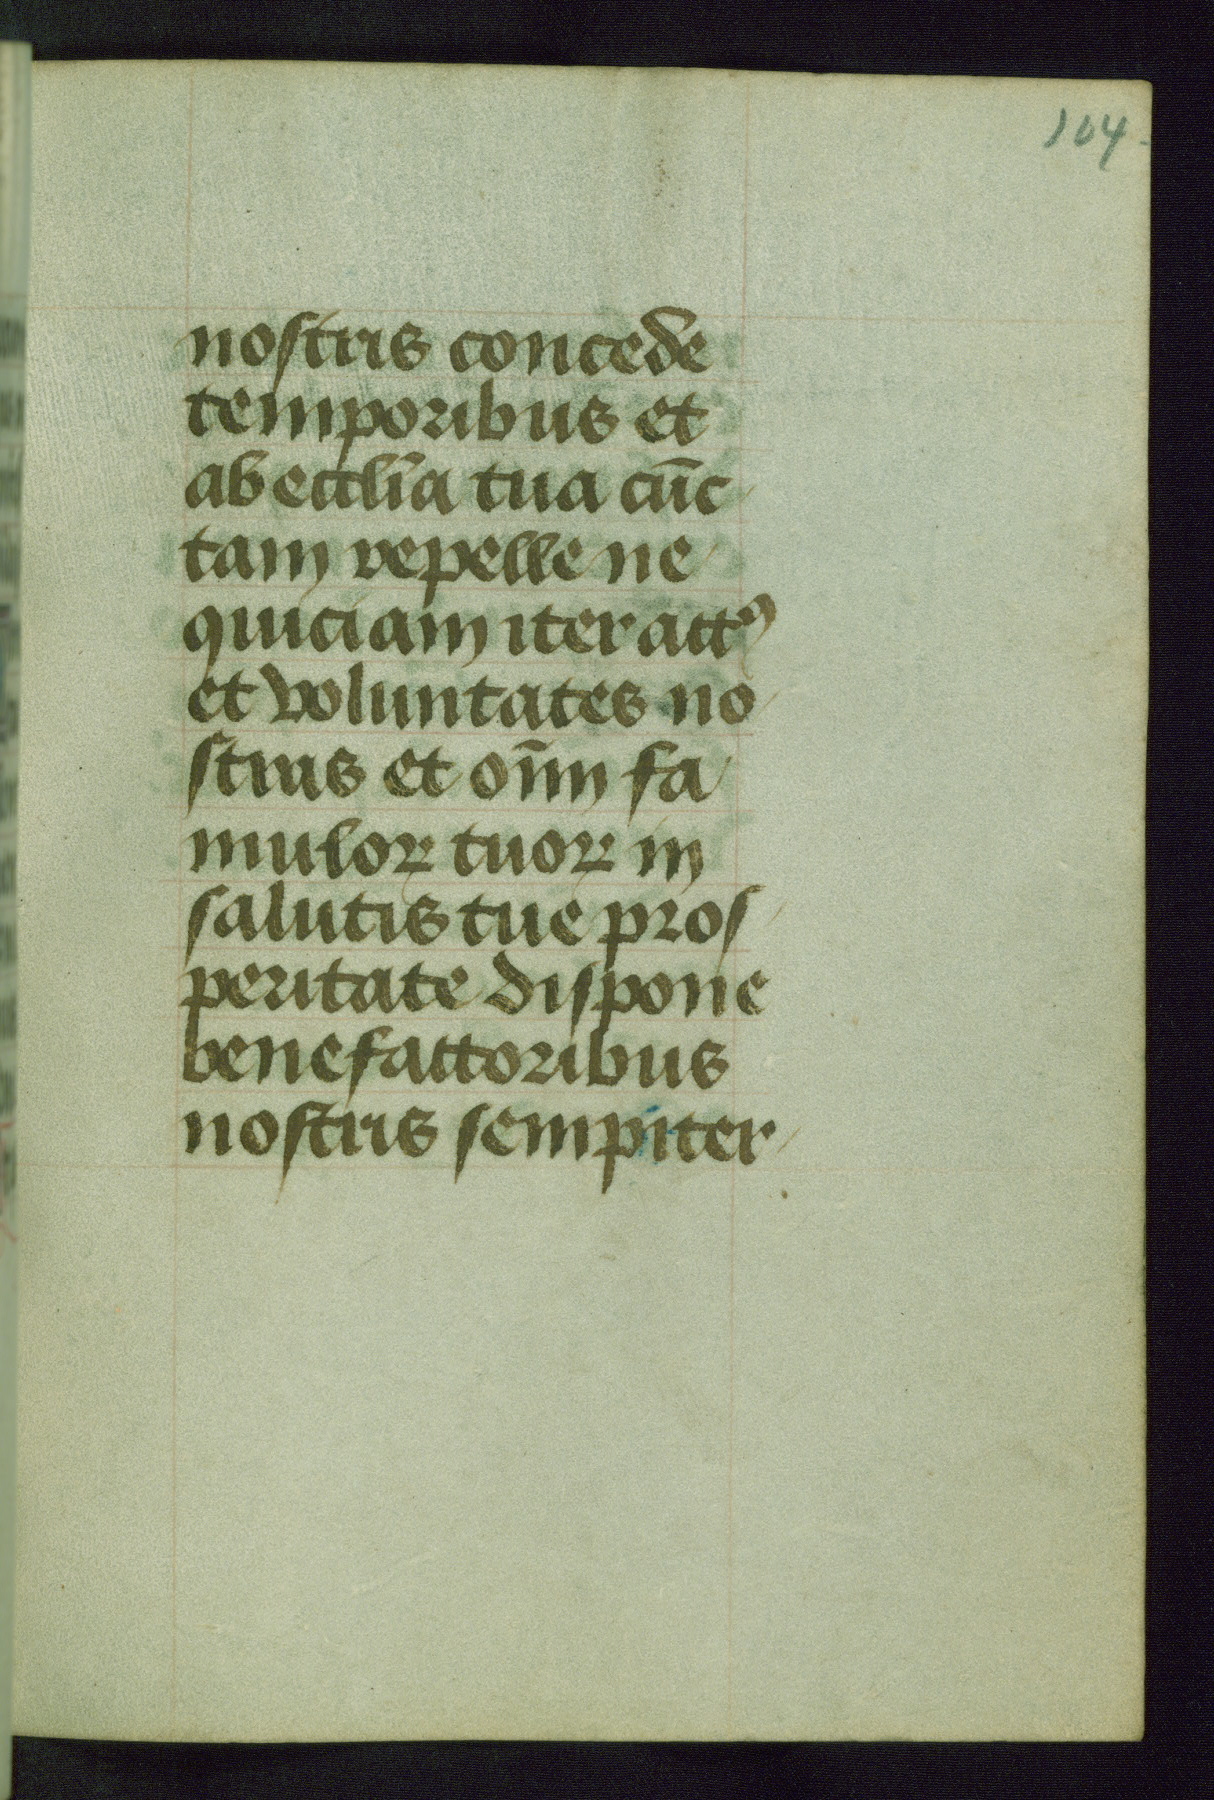 104
nostris concede
temporibus et
ab eccl̄ia tua cūc
tam repelle ne
quiciam iter actꝰ
et voluntates no
stras et om̄m fa
mulorꝝ tuorꝝ in
salutis tue pros
peritate dispone
benefactoribus
nostris sempiter